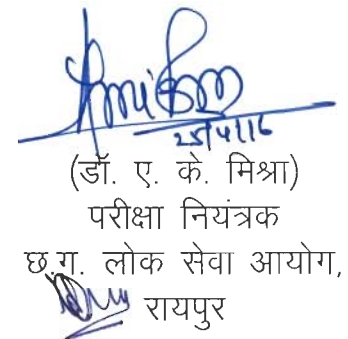 25/4/16
(डॉ. ए. के. मिश्रा)
परीक्षा नियंत्रक
छ.ग. लोक सेवा आयोग,
रायपुर